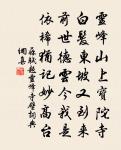 靈峰山上寶陀寺
白髮東坡又到來
前世德雲今我是
依稀猶記妙高台
蘇軾題靈峰寺壁詞典
網集